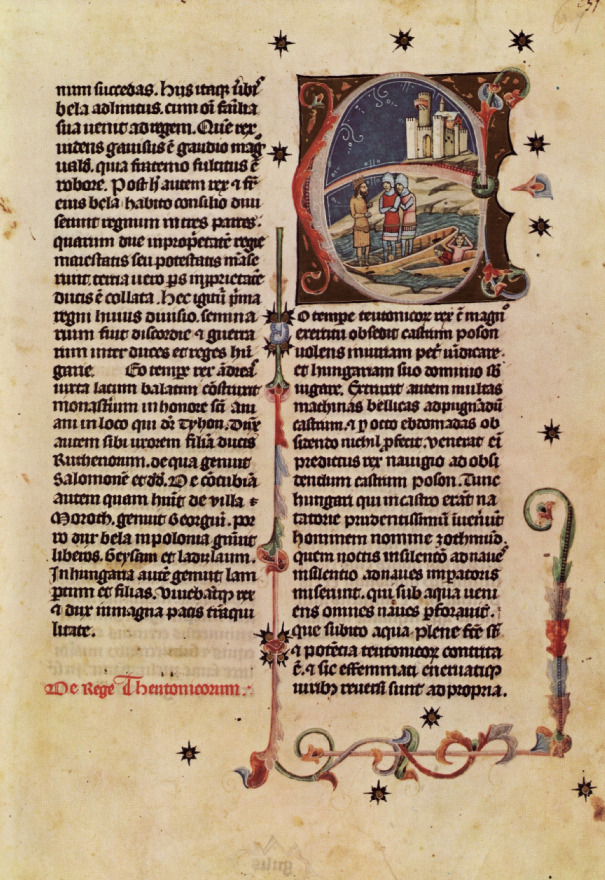 num succedas. Hiis itaq; ūbis
bela admittis. cum oī familia
sua uenit ad regem. Quē rex
uidens gauisus ē gaudio mag
ualđ. quia fraterno fulcitus ē
robore. Post h̄ autem rex ⁊ fr̄
eius bela habito consilio diui
serunt regnum in tres partes.
quarum due in proprietatē regie
maiestatis seu potestatis māse
runt. tertia uero ps in proprietatē
ducis ē collata. Hec igitur p̄ma
regni huius diuisio. semina
rium fuit discordie ⁊ guerra
rum inter duces et reges hū
garie. Eo tempe rex ādreas
iuxta lacum balatin cōstruxit
monastīum in honore sc̄i ani
ani in loco qui dr̄ Tyhon. Dux
autem sibi uxorem filiā ducis
Ruthenorum. de qua genuit
Salomonē et dđ. De cōcubia
autem quam huit de uilla
Moroth. genuit Georgiū. por
ro dux bela in polonia genuit
liberos. Geysam et ladizlaum.
In hungaria autē genuit lam
ptum et filias. Viuebatq; rex
⁊ dux in magna pacis trāqui
litate.
De Rege Theutonicorum.
EO tempe teutonicor̄ rex cū magn̄
exercitu obsedit castrum poson
uolens iniuriam pet̄ uīdicare.
et hungariam suo dominio sb̄
iugare. Erexerat autem multas
machinas bellicas ad pugnādū
castrum. ⁊ p octo ebdomadas ob
sidendo nichil pfecit. uenerat eī
predictus rex nauigio ad obsi
dendum castrum poson. Tunc
hungari qui in castro erāt na
tatorie prudentissimū iuenerūt
hominem nomine zothmūd.
quem noctis in silentio ad naues
in silentio ad naues imp̄atoris
miserunt. qui sub aqua ueni
ens omnes naues pforauit.
que subito aqua plene fc̄e sūt
⁊ potētia teutonicor̄ contrita
ē. ⁊ sic effeminati eneruatiq;
uirib; reuersi sunt ad propria.